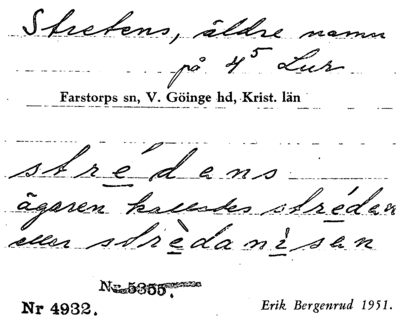 Stretens, äldre namn
på 4⁵ Lur
Farstorps sn, V. Göinge hd, Krist. län
strédens
ägaren kallades strédan
eller strèdanìsen
Nr 5355.
Nr 4932.
Erik Bergenrud 1951.